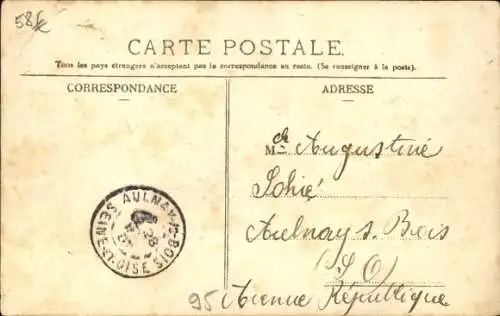 58k
CARTE POSTALE.
Tous les pays étrangers n'acceptent pas la correspondance au recto. (Se renseigner à la poste).
CORRESPONDANCE
ADRESSE
Melle Augustine
Aulnay s. Bois
(S O)
95 Avenue République
AULNAY-S-BOIS
SEINE-ET-OISE
28